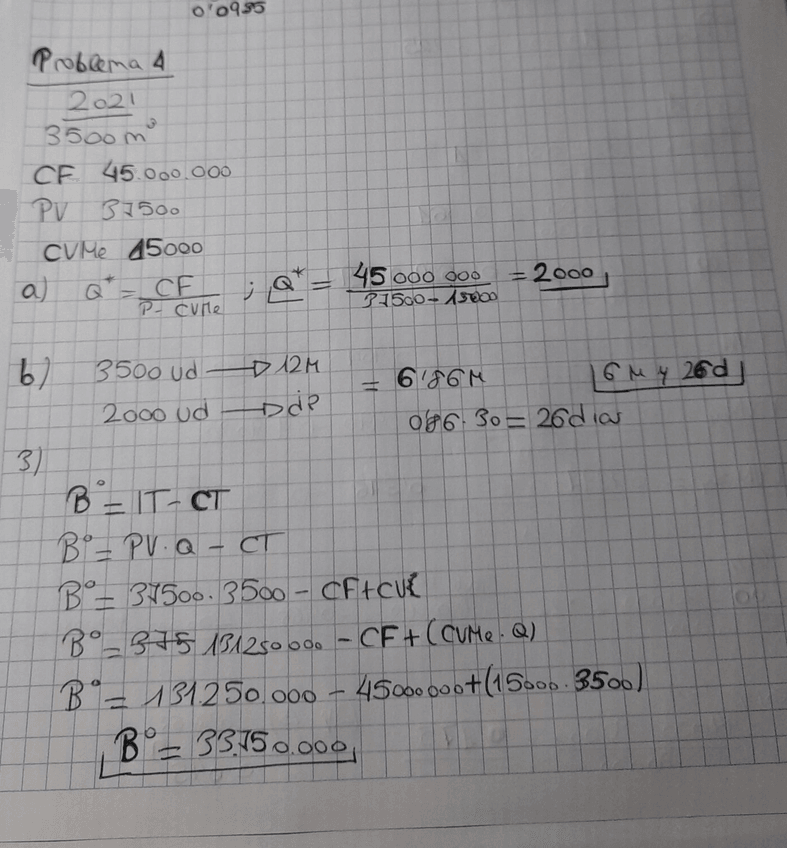 0'0955
Problema 4
2021
3500 m³
CF 45.000.000
PV 37500
CVMe 15000
a) Q* = CF / P - CVMe ; Q* = 45 000 000 / 37500 - 15000 = 2000
b) 3500 ud → 12 M = 6'86 M 6 M y 26d
2000 ud → d? 0'86 · 30 = 26 dias
3)
B° = IT - CT
B° = PV · Q - CT
B° = 37500 · 3500 - CF + CV
B° = 375 131250000 - CF + (CVMe · Q)
B° = 131250.000 - 45000000 + (15000 · 3500)
B° = 33.750.000